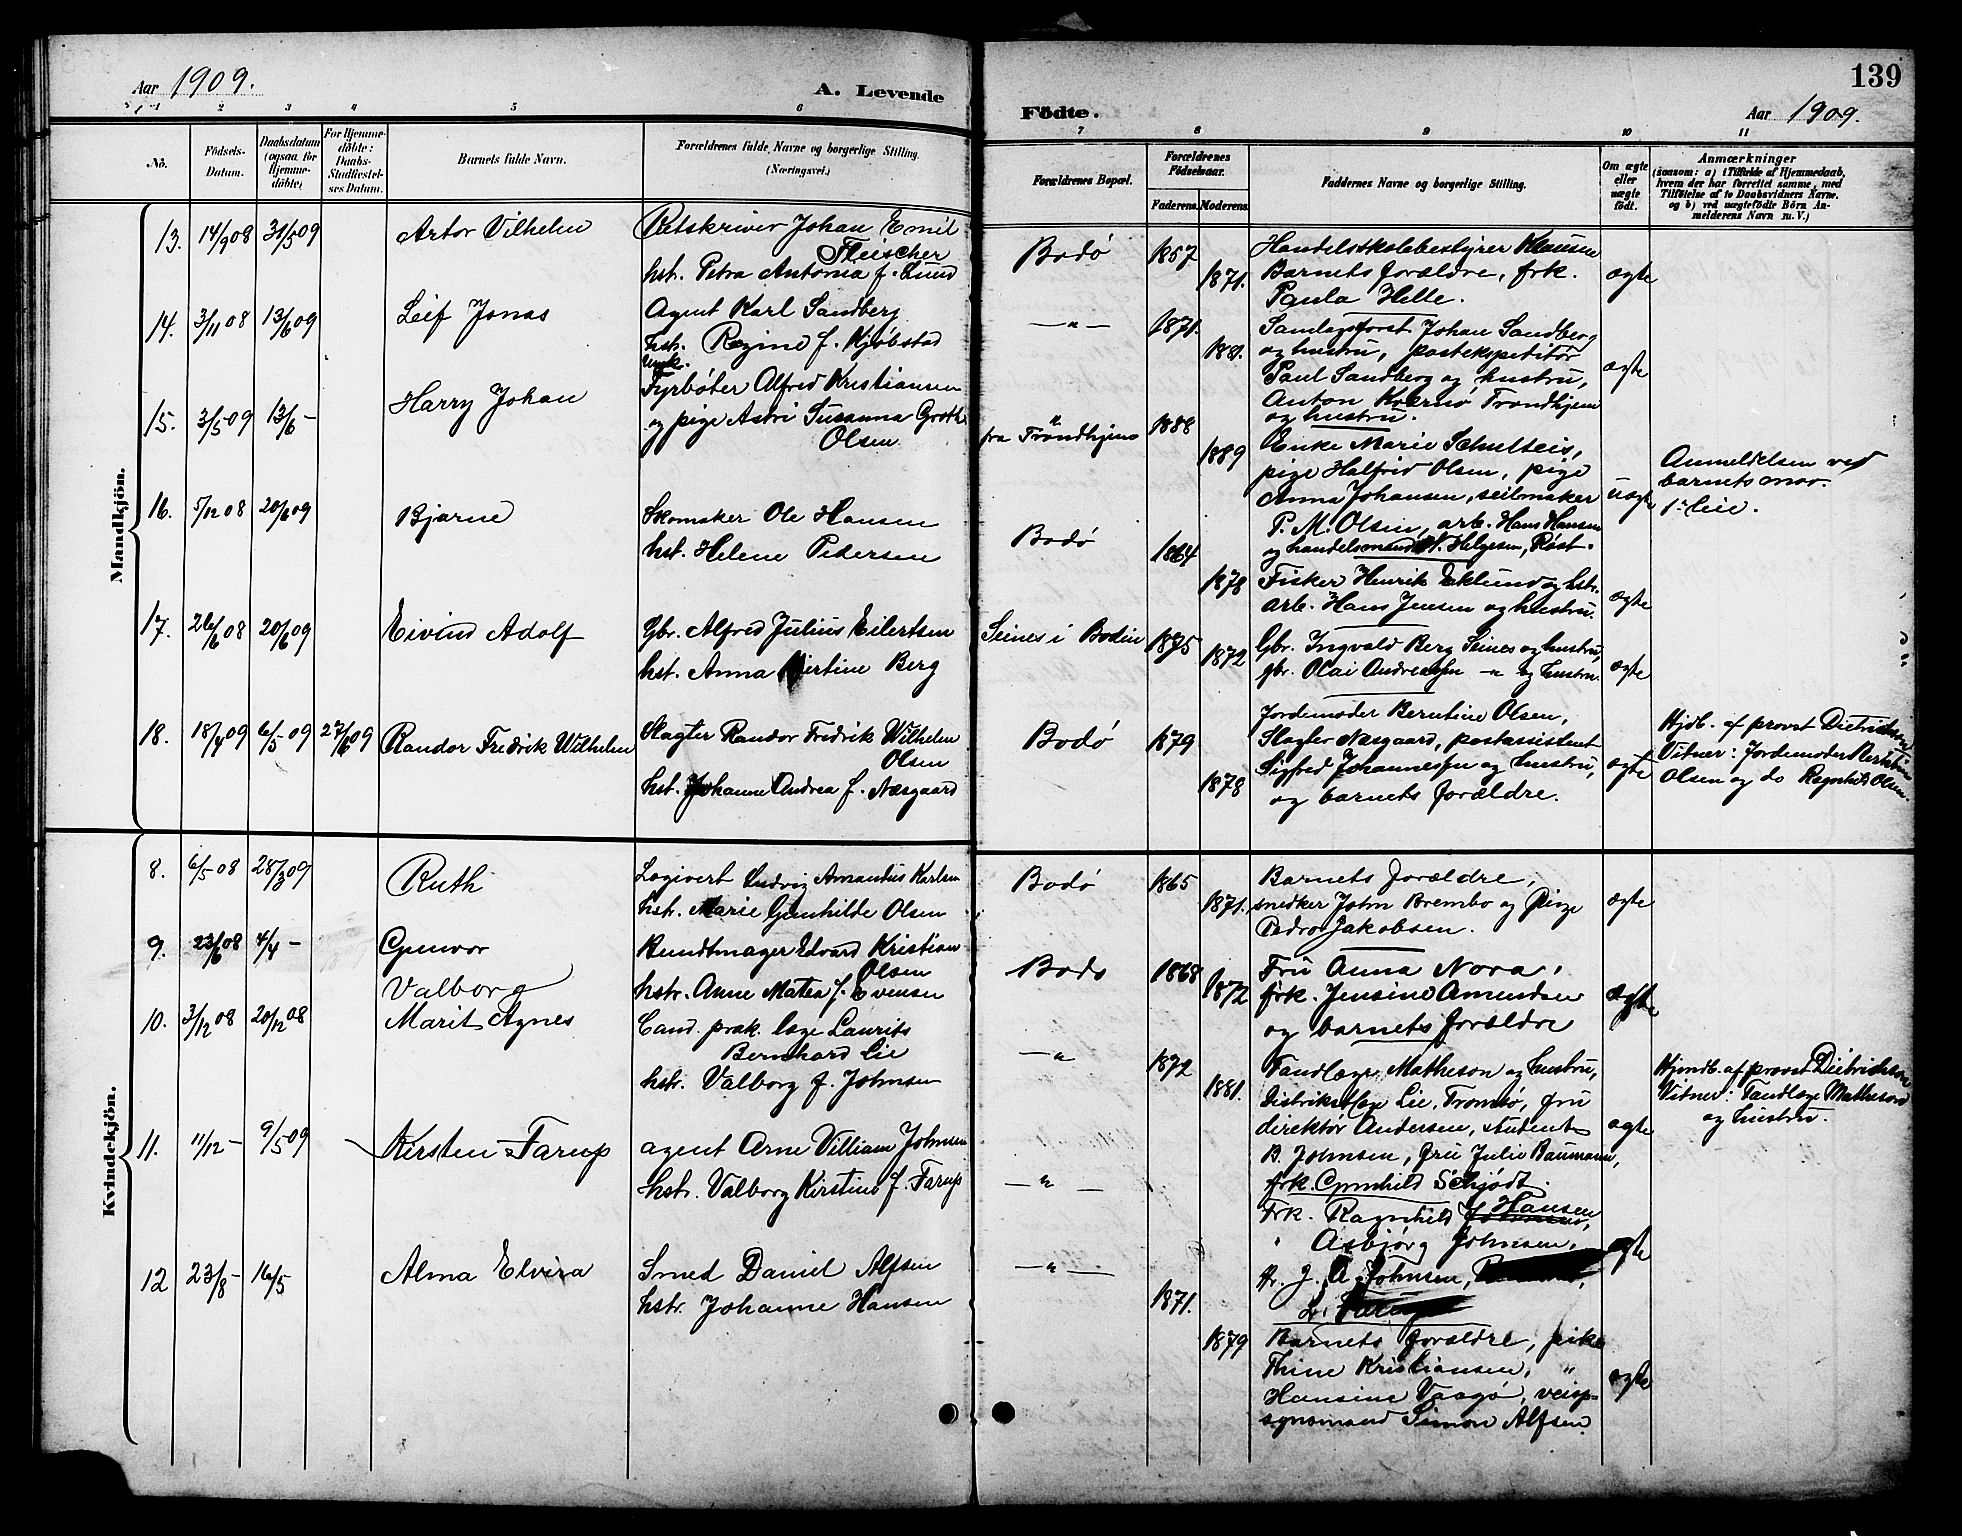 139
Aar 1909.
A. Levende
Födte.
Aar 1909.
1 2 3 4 5 6 7 8 9 10 11
No.
Födsels-
Datum.
Daabsdatum
(ogsaa for
Hjemme-
döbte)
For Hjemme-
döbte:
Daabs-
Stadfæstel-
ses Datum.
Barnets fulde Navn.
Forældrenes fulde Navne og borgerlige Stilling.
(Næringsvei.)
Forældrenes Bopæl.
Forældrenes
Födselsaar.
Faderens. Moderens.
Faddernes Navne og borgerlige Stilling.
Om ægte
eller
uægte
födt.
Anmærkninger
(saasom: a) i Tilfælde af Hjemmedaab,
hvem der har forrettet samme, med
Tilföielse af to Daabsvidners Navne,
og b) ved uægtefödte Börn An-
melderens Navn m. V.)
Mandkjön.
13. 14/9 08 31/5 09
Artor Vilhelm
Retskriver Johan Emil
Fleischer
hst. Petra Antonia f. Lund
Bodø
1867
1871.
Handelsskolebestyrer Klausen
Barnets forældre, frk.
Paula Helle.
ægte
14. 3/11 08 13/6 09
Leif Jonas
Agent Karl Sandberg
hst. Regine f. Kjøbstad
—"—
1871.
1881.
Samlagsforst Johan Sandberg
og hustru, postekspeditør
Paul Sandberg og hustru,
Anton Trondhjem
og hustru.
ægte
15. 3/5 09 13/6 —
Harry Johan
Ungk.
Fyrbøter Alfred Kristiansen
og pige Astri Susanna Groth
Olsen
"
fra Trondhjem
1888
1889
Enke Marie Schulteis,
pige Halfrid Olsen, pige
Anna Johansen, seilmaker
P. M. Olsen, arb. Hans Hansen
og handelsmand N. Helgesen, Røst.
uægte
Anmeldelsen ved
barnets mor.
1ste leie.
16. 5/12 08 20/6 09
Bjarne
Skomaker Ole Hansen
hst. Helene Pedersen
Bodø
1864
1878
Fisker Henrik Eklund og hstr.
arb. Hans Jensen og hustru.
ægte
17. 26/6 08 20/6 09
Eivind Adolf
Gbr. Alfred Julius Eilertsen
hst. Anna Kirtine Berg
Seines i Bodin
1875
1872
Gbr. Ingvald Berg Seines og hustru,
gbr. Olai Andreassen —"— og hustru.
ægte
18. 18/4 09 6/5 09 27/6 09
Randor Fredrik Wilhelm
Slagter Randor Fredrik Wilhelm
Olsen
hst. Johanne Andrea f. Næsgaard
Bodø
1879
1878
Jordemoder Berntine Olsen,
Slagter Næsgaard, postassistent
Sigfred Johannessen og hustru,
og barnets forældre.
ægte
Hjdb. af provst Dietrichson
Vitner: Jordemoder Berntine
Olsen og do Ragnhild Olsen.
Kvindekjön.
8. 6/5 08 28/3 09
Ruth
Logivert Ludvig Amandus Karlsen
hst. Marie Gunhilde Olsen
Bodø
1865
1871.
Barnets forældre,
snedker John Brembo og Pige
Pedro Jakobsen.
ægte
9. 23/6 08 4/4 —
Gunvor
Valborg
Bundtmager Edvard Kristian
Olsen
hstr. Anne Matea f. Evensen
Bodø
1868
1872
Fru Anna Nora,
frk. Jensine Amundsen
og barnets forældre
ægte
10. 3/12 08 20/12 08
Marit Agnes
Cand. prak. læge Laurits
Bernhard Lie
hstr. Valborg f. Johnsen
—"
1872
1881.
Tandlæge Matheson og hustru,
Distriktslæge Lie, Tromsø, fru
direktør Andersen, student
B. Johnsen, fru Julie Baumann,
frk. Gunhild Schjødt.
ægte
Hjmdb. af provst Dietrichson
Vitner: Tandlæge Matheson
og hustru.
11. 11/12 — 9/5 09
Kirsten Farup
agent Arne Villiam Johnsen
hstr. Valborg Kirstine f. Farup
—"—
Frk. Ragnhild Hansen
" Asbjørg Johnsen,
Hr. J. A. Johnsen,
L. Farup
ægte
12 23/8 — 16/5
Alma Elvira
Smed Daniel Alfsen
hstr. Johanne Hansen
—"—
1871.
1879
Barnets forældre, pike
Thine Kristiansen, "
Hansine Vaagø, veiop-
synsmand Simon Alfsen.
ægte